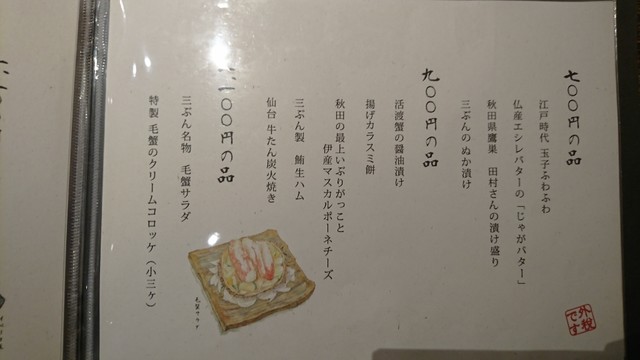 七〇〇円の品
江戸時代 玉子ふわふわ
仏産エシレバターの「じゃがバター」
秋田県鷹巣 田村さんの漬け盛り
三ぶんのぬか漬け
九〇〇円の品
活渡蟹の醤油漬け
揚げカラスミ餅
秋田の最上いぶりがっこと
伊産マスカルポーネチーズ
三ぶん製 鮪生ハム
仙台 牛たん炭火焼き
一〇〇円の品
三ぶん名物 毛蟹サラダ
特製 毛蟹のクリームコロッケ（小三ヶ）
毛蟹サラダ
外税です